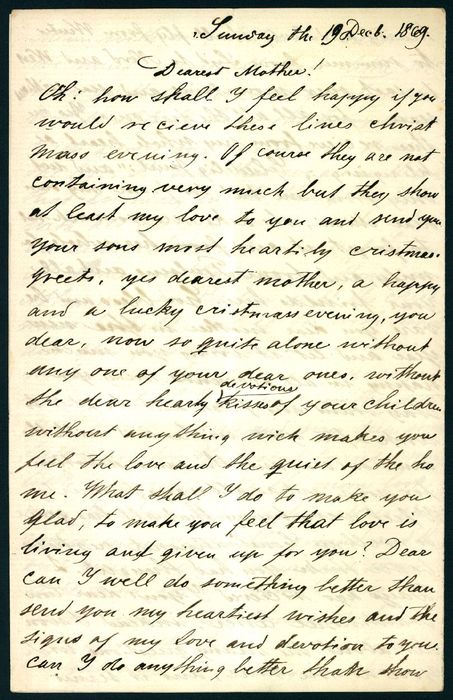 Sunday the 19 Decb. 1869.
Dearest Mother!
Oh! how shall I feel happy if you
would recieve these lines christ
mass evening. Of course they are not
containing very much but they show
at least my love to you and send you
your sons most heartily cristmas
greets, yes dearest mother, a happy
and a lucky cristmass evening, you
dear, now so quite alone without
any one of your dear ones, without
devotions
the dear hearty kisses of your children
without anything wich makes you
feel the love and the quiet of the ho
me. What shall I do to make you
glad, to make you feel that love is
living and given up for you? Dear
can I well do something better than
send you my heartiest wishes and the
signs of my love and devotion to you.
can I do anything better than show